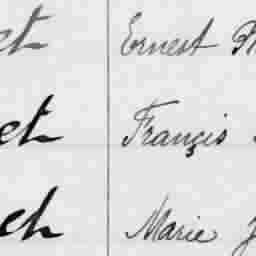 et Ernest
et Françis
ch Marie